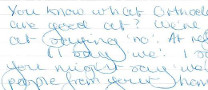 You know what Orthodo
are good at? We're
at saying 'no'. At not
'I today 'we'. I
You might say 'we'
people from your hom